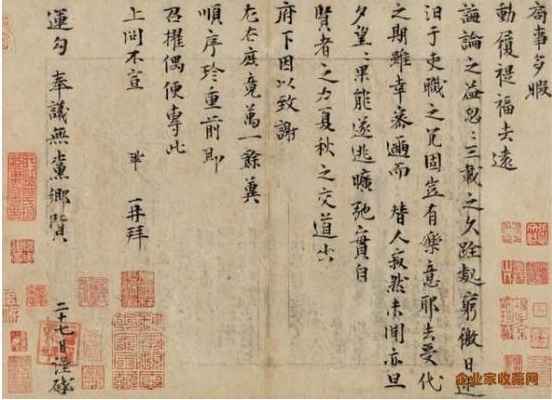 局事多暇
動履禔福去遠
誨論之益忽〻三載之久跧處窮徼日迷
汨于吏職之冗固豈有樂意耶去受代
之期雖幸密邇而替人寂然未聞亦旦
夕望〻果能遂逃曠弛實自
賢者之力夏秋之交道出
府下因以致謝
左右庶竟萬一餘冀
順序珍重前即
召擢偶便專此
上問不宣 鞏 再拜
運勾奉議無黨鄉賢
二十七日謹啓
企业家收藏网